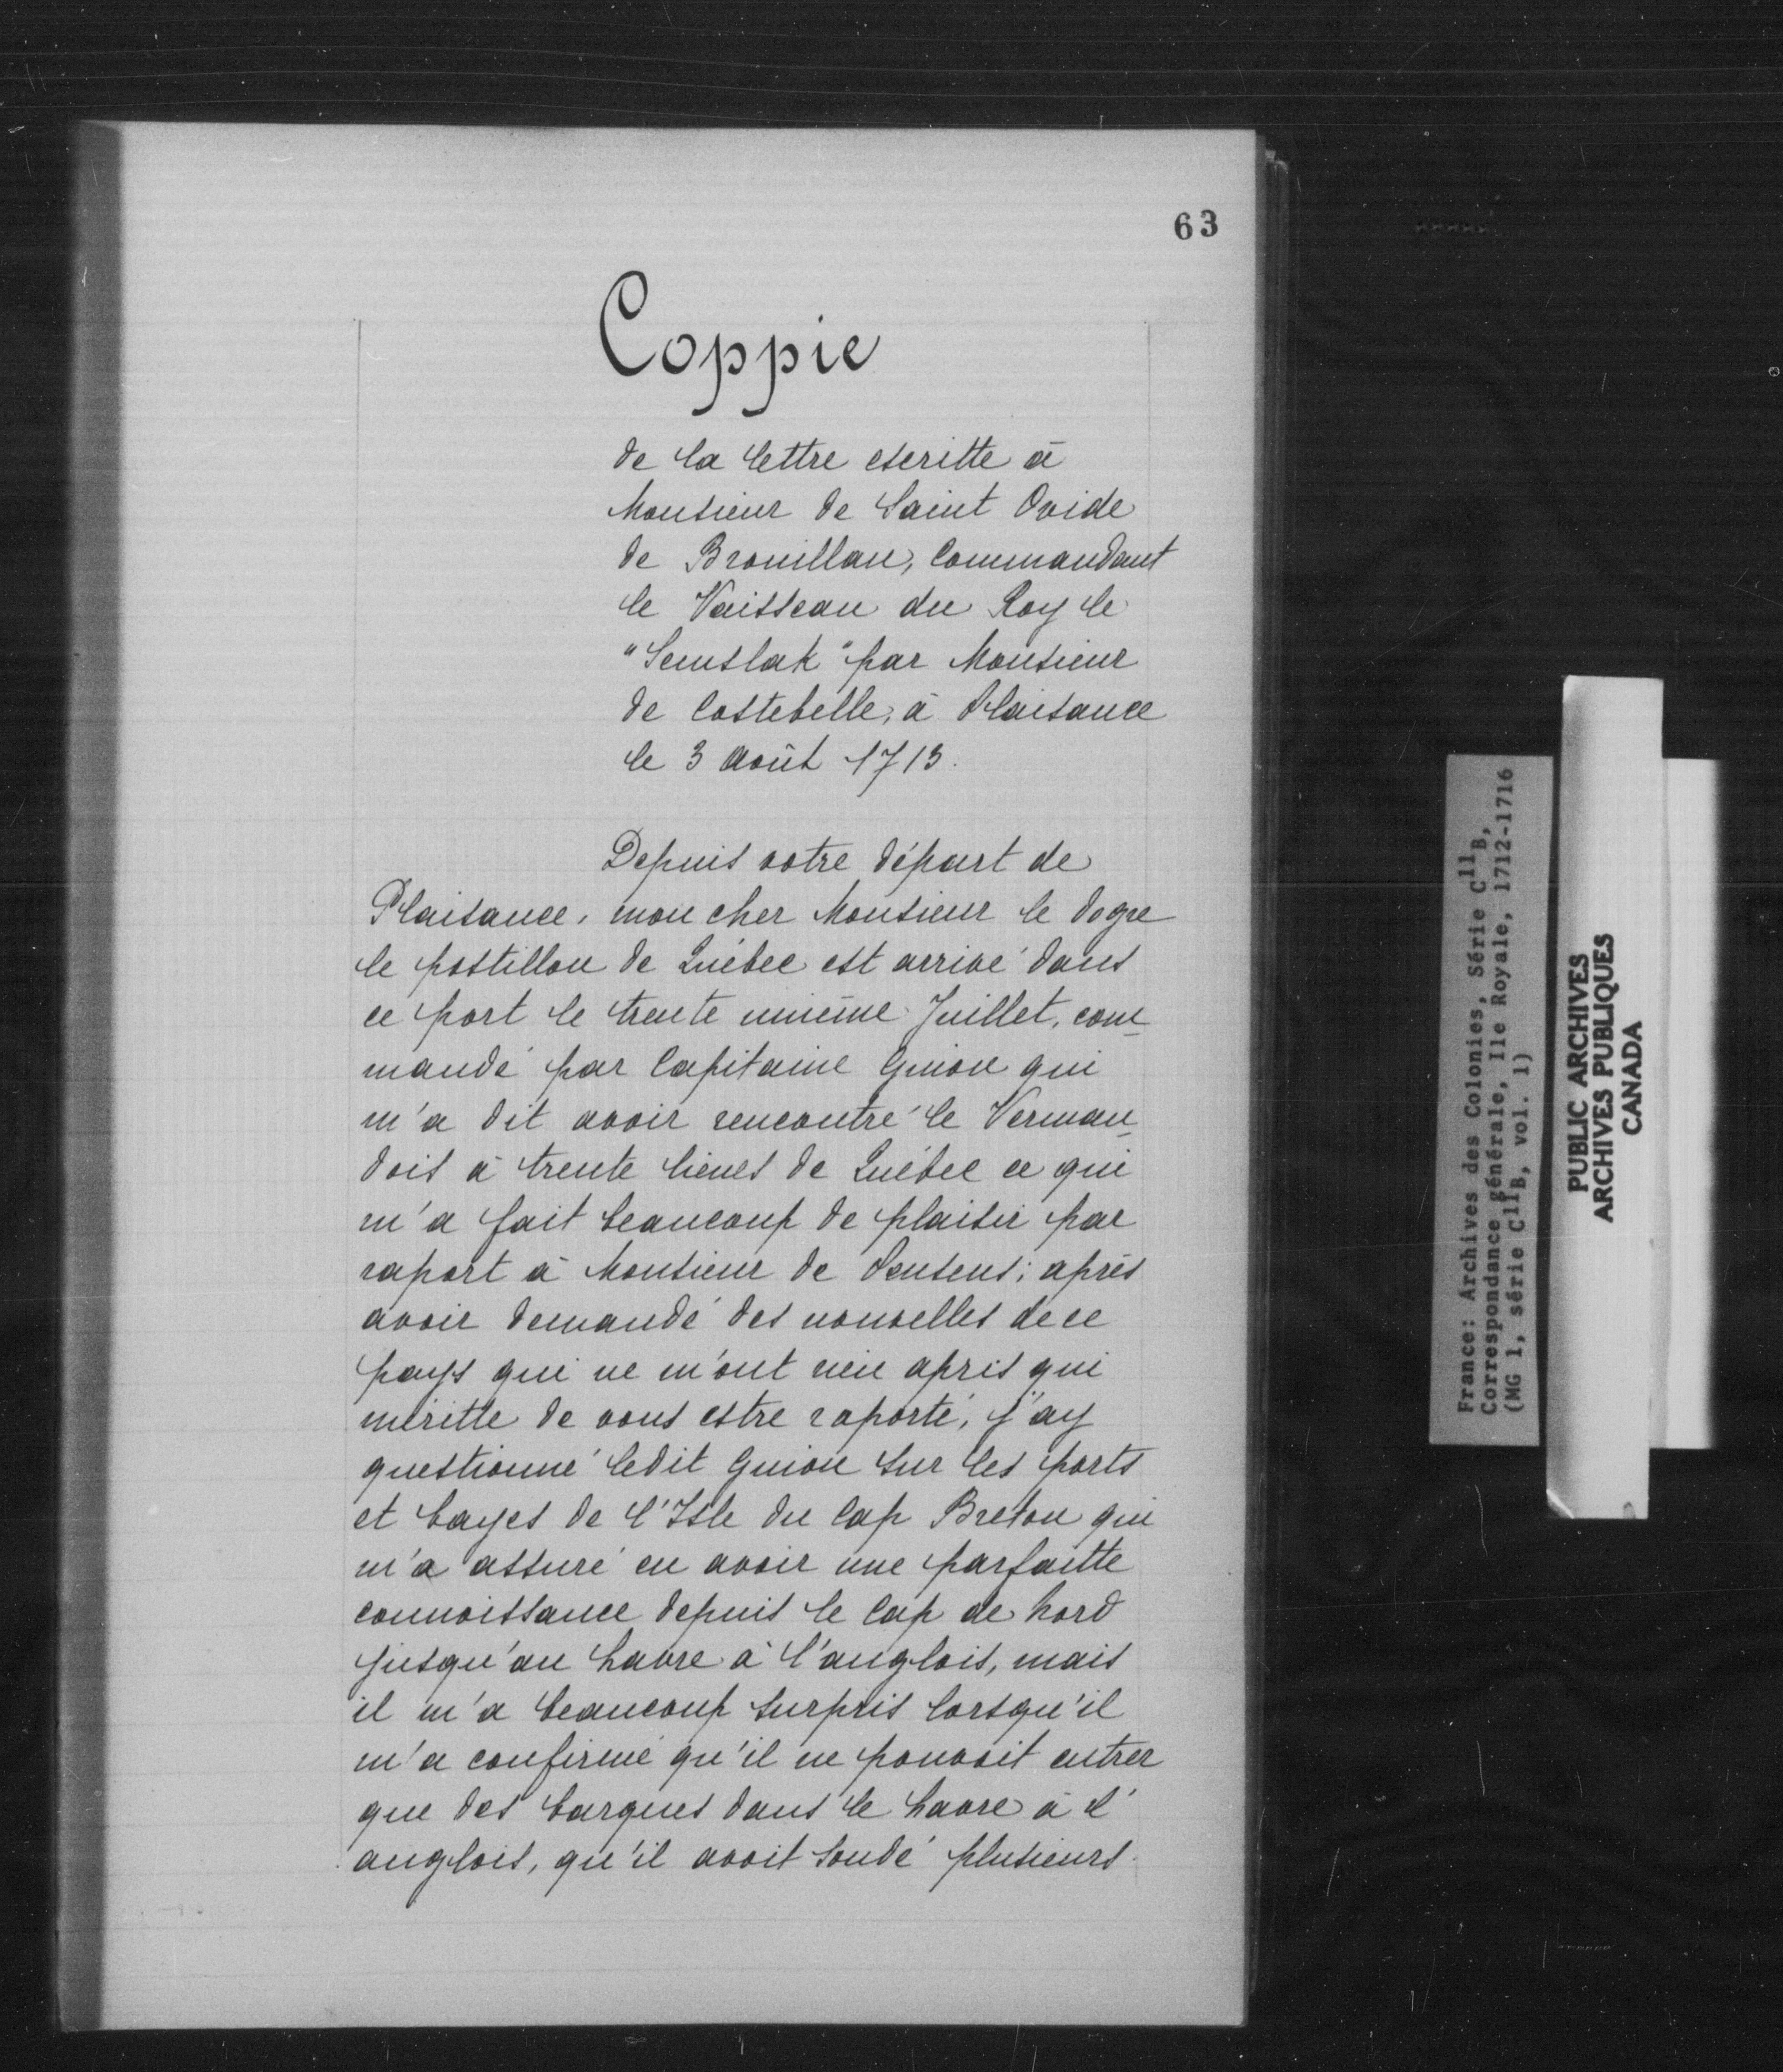 63
Coppie
de la lettre escritte à
Monsieur de Saint Ovide
de Brouillan, Commandant
le Vaisseau du Roy le
"Semslak" par Monsieur
de Costebelle, à Plaisance
le 3 Août 1713.
Depuis votre départ de
Plaisance, mon cher Monsieur le dogre
le postillon de Québec est arrivé dans
ce port le trente unième Juillet, com-
mandé par Capitaine Guion qui
m'a dit avoir rencontré le Verman-
dois à trente lieues de Québec ce qui
m'a fait beaucoup de plaisir par
raport à Monsieur de Pensens; après
avoir demandé des nouvelles de ce
pays qui ne m'ont rien apris qui
méritte de vous estre raporté, j'ay
questionné ledit Guion sur les ports
et bayes de l'Isle du Cap Breton qui
m'a assuré en avoir une parfaitte
connoissance depuis le Cap de Nord
jusqu'au havre à l'anglois, mais
il m'a beaucoup surpris lorsqu'il
m'a confirmé qu'il ne pouvoit entrer
que des barques dans le havre à l'
anglois, qu'il avoit sondé plusieurs
France: Archives des Colonies, Série C11B,
Correspondance générale, Ile Royale, 1712-1716
(MG 1, série C11B, vol. 1)
PUBLIC ARCHIVES
ARCHIVES PUBLIQUES
CANADA